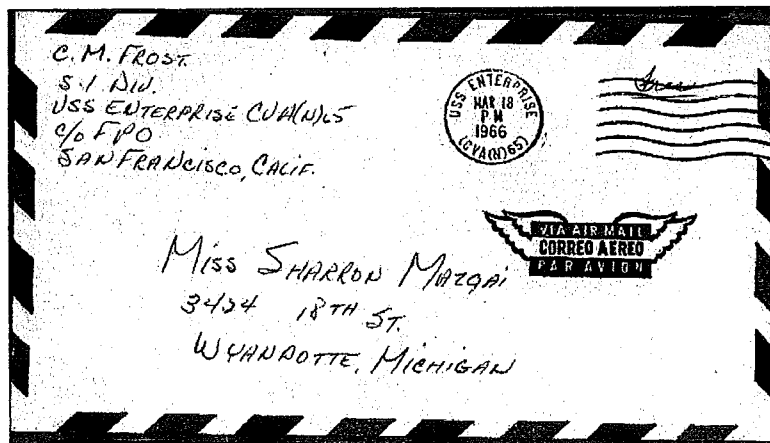 C. M. FROST
S-1 DIV.
USS ENTERPRISE CVA(N)65
c/o FPO
SAN FRANCISCO, CALIF.
USS ENTERPRISE
MAR 18
PM
1966
(CVA(N)65)
Free
VIA AIR MAIL
CORREO AEREO
PAR AVION
MISS SHARRON MAZGAI
3424 18TH ST.
WYANDOTTE, MICHIGAN